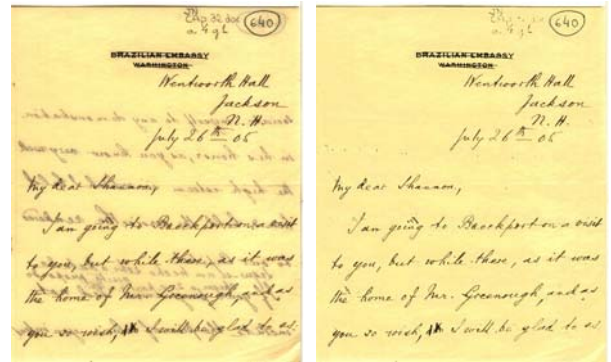 640
BRAZILIAN EMBASSY
WASHINGTON
Wentworth Hall
Jackson
N. H.
July 26th 05
My dear Shannon,
I am going to Brockport on a visit
to you, but while there, as it was
the home of Mr. Greenough, and as
you so wish, I will be glad to as
640
BRAZILIAN EMBASSY
WASHINGTON
Wentworth Hall
Jackson
N. H.
July 26th 05
My dear Shannon,
I am going to Brockport on a visit
to you, but while there, as it was
the home of Mr. Greenough, and as
you so wish, I will be glad to as